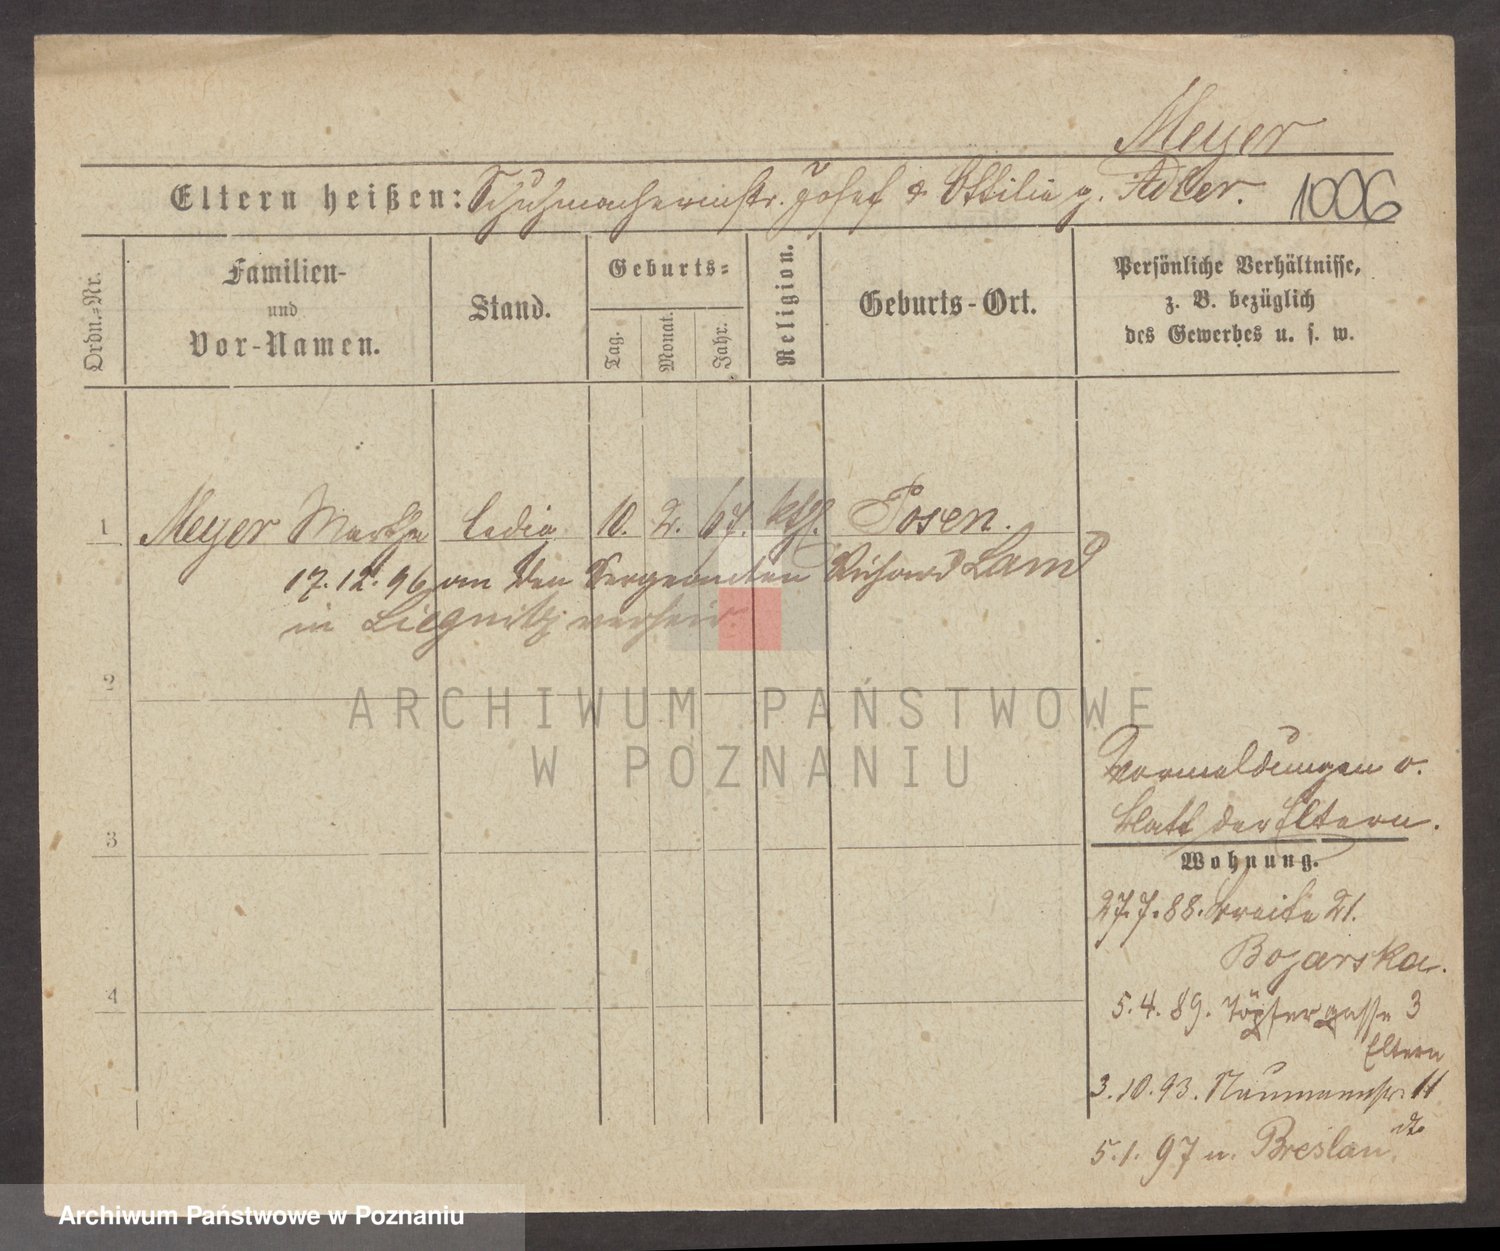 Meyer
Eltern heißen: Schuhmachermstr. Josef & Ottilie g. Adler. 1006
Ordn.-Nr.
Familien-
und
Vor-Namen.
Stand.
Geburts-
Tag.
Monat.
Jahr.
Religion.
Geburts-Ort.
Persönliche Verhältnisse,
z. B. bezüglich
des Gewerbes u. s. w.
1 Meyer Martha ledig 10. 2. 67. kth. Posen.
17.12.96 an den Sergeanten Richard Land
in Liegnitz verheir.
2
ARCHIWUM PAŃSTWOWE
W POZNANIU
Vormeldungen v.
Blatt der Eltern.
3
Wohnung.
27.7.88. Breite 21.
Bojarska.
4
5.4.89. Töpfergasse 3
Eltern
3.10.93. Naumannstr. 11
dto
5.1.97 n. Breslau.
Archiwum Państwowe w Poznaniu